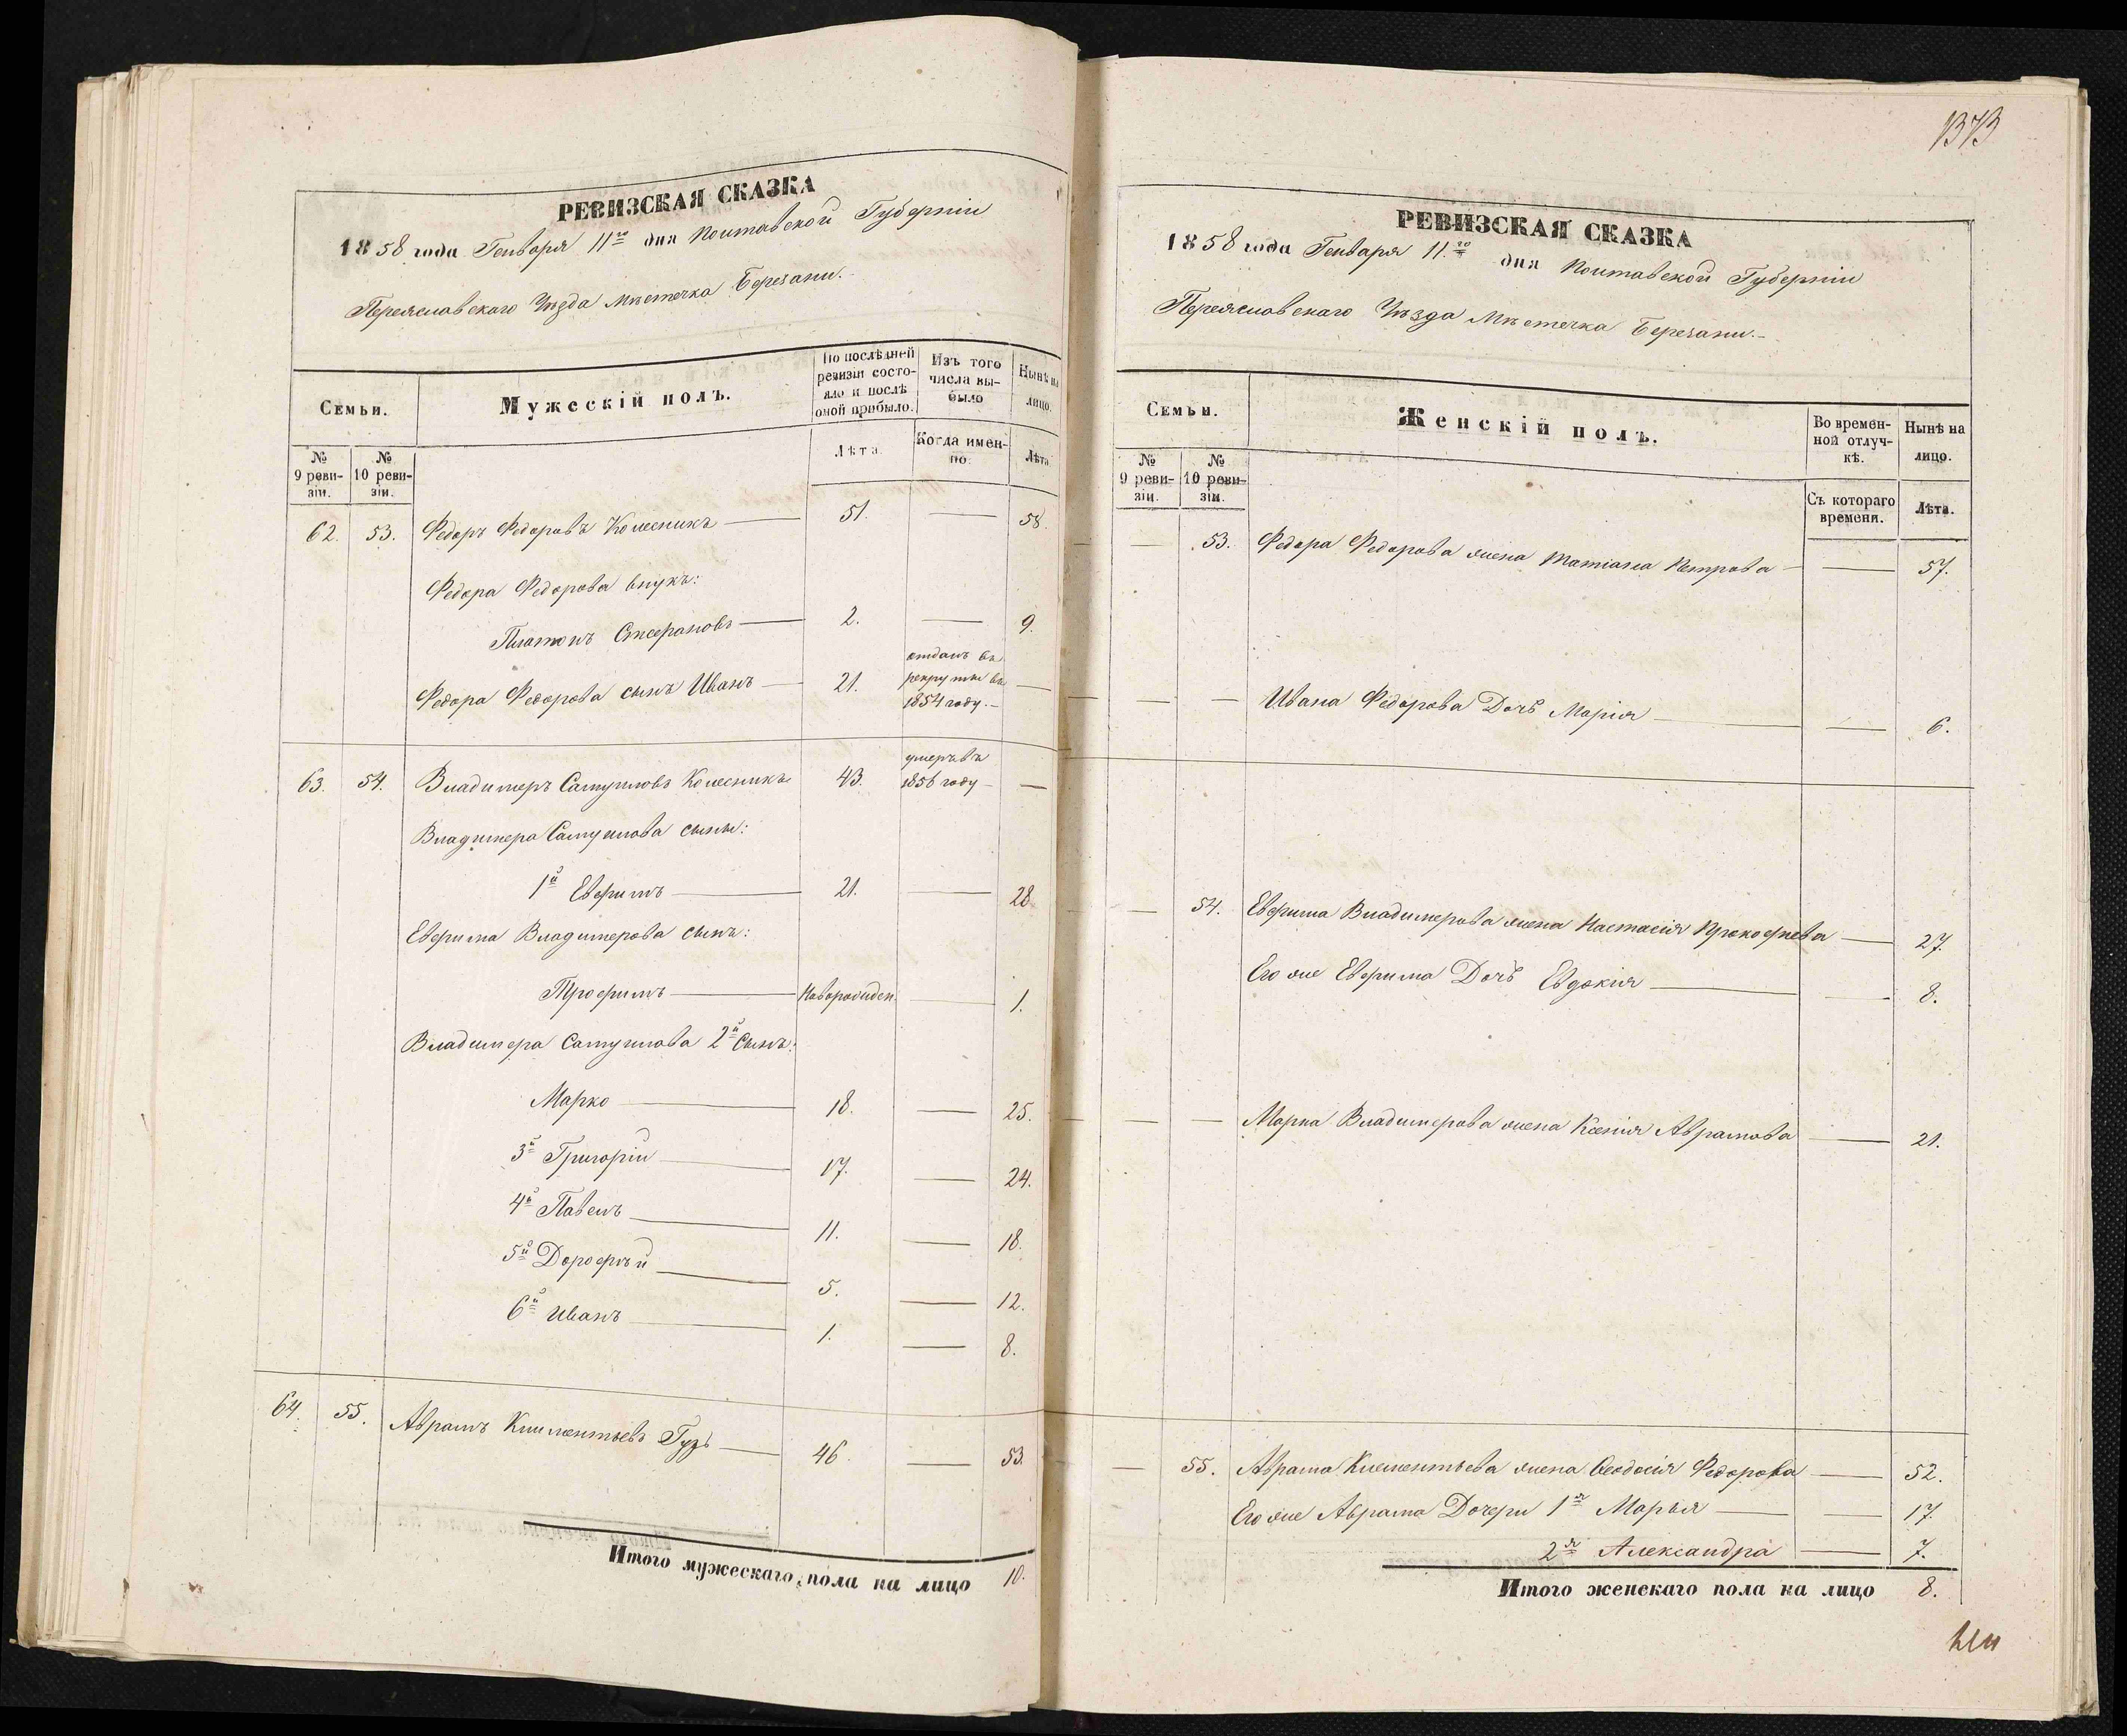 РЕВИЗСКАЯ СКАЗКА
1858 года Генваря 11го дня Полтавской Губерніи
Переяславскаго Уѣзда Мѣстечка Березани.
Семьи.
Мужескій полъ.
По послѣдней ревизіи состояло и послѣ оной прибыло.
Изъ того числа выбыло
Нынѣ на лицо.
№ 9 ревизіи.
№ 10 ревизіи.
Лѣта.
Когда именно.
Лѣта
62. 53. Федоръ Федоровъ Колесникъ — 51. — 58.
Федора Федорова внукъ:
Платонъ Стефановъ — 2. — 9.
Федора Федорова сынъ Иванъ — 21. отданъ въ рекруты въ 1854 году. —
63. 54. Владимеръ Самуиловъ Колесникъ 43. умеръ въ 1856 году —
Владимера Самуилова сыны:
1й Евфимъ — 21. — 28
Евфима Владимерова сынъ:
Трофимъ — Новорожден. — 1.
Владимера Самуилова 2й сынъ:
Марко — 18. — 25.
3й Григорій — 17. — 24.
4й Павелъ — 11. — 18.
5й Дорофѣй — 5. — 12.
6й Иванъ — 1. — 8.
64. 55. Аврамъ Климентьевъ Гузь — 46. — 53.
Итого мужескаго пола на лицо 10.
1373
РЕВИЗСКАЯ СКАЗКА
1858 года Генваря 11.го дня Полтавской Губерніи
Переяславскаго Уѣзда Мѣстечка Березани.
Семьи.
Женскій полъ.
Во временной отлучкѣ.
Нынѣ на лицо.
№ 9 ревизіи.
№ 10 ревизіи.
Съ котораго времени.
Лѣта.
— 53. Федора Федорова жена Татіана Петрова — 57.
— — Ивана Федорова Дочь Марія — — 6.
— 54. Евфима Владимерова жена Настасія Прокофьева — 27.
Его же Евфима Дочь Евдокія — — 8.
— — Марка Владимерова жена Ксенія Аврамова — 21.
— 55. Аврама Климентьева жена Феодосія Федорова — 52.
Его же Аврама Дочери 1я Марья — — 17.
2я Александра — 7.
Итого женскаго пола на лицо 8.